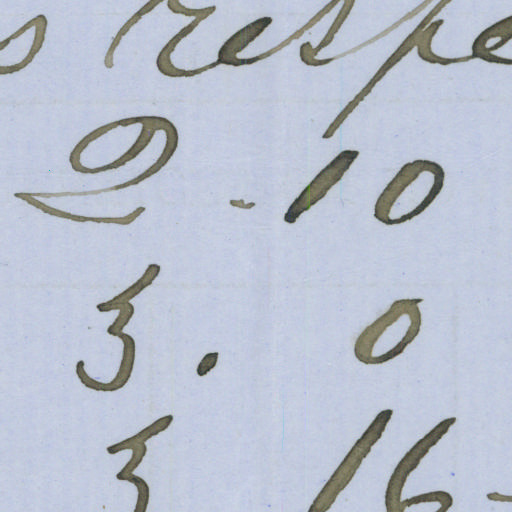 s respe
2 - 10
3 . 0
3 16 -